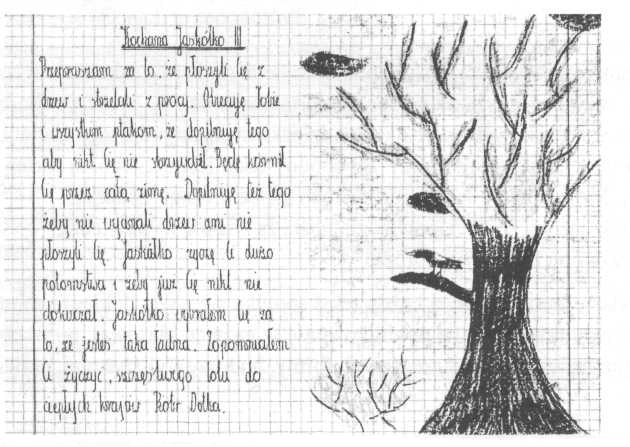 Kochana Jaskółko !!!
Przepraszam za to, że płoszyli Cię z
drzew i strzelali z procy. Obiecuję Tobie
i wszystkim ptakom, że dopilnuję tego
aby nikt Cię nie skrzywdził. Będę karmił
Cię przez całą zimę. Dopilnuję też tego
żeby nie wyłamali drzew ani nie
płoszyli Cię. Jaskółko życzę Ci dużo
potomstwa i żeby już Cię nikt nie
dokuczał. Jaskółko wybrałem Cię za
to, że jesteś taka ładna. Zapomniałem
Ci życzyć, szczęśliwego lotu do
ciepłych krajów Piotr Dolka.